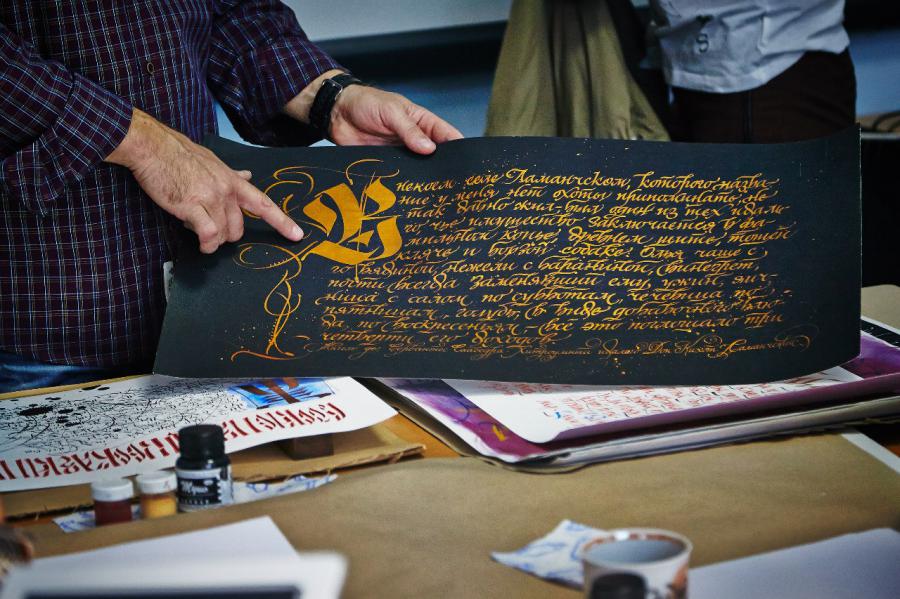 В некоем селе Ламанчском, которого назва-
ние у меня нет охоты припоминать, не
так давно жил-был один из тех идаль-
го, чье имущество заключается в фа-
мильном копье, древнем щите, тощей
кляче и борзой собаке. Олья чаще с
говядиной, нежели с бараниной, винегрет,
почти всегда заменявший ему ужин, яич-
ница с салом по субботам, чечевица по
пятницам, голубь, в виде добавочного блю-
да, по воскресеньям – все это поглощало три
четверти его доходов.
Мигель де Сервантес Сааведра Хитроумный идальго Дон Кихот Ламанчский